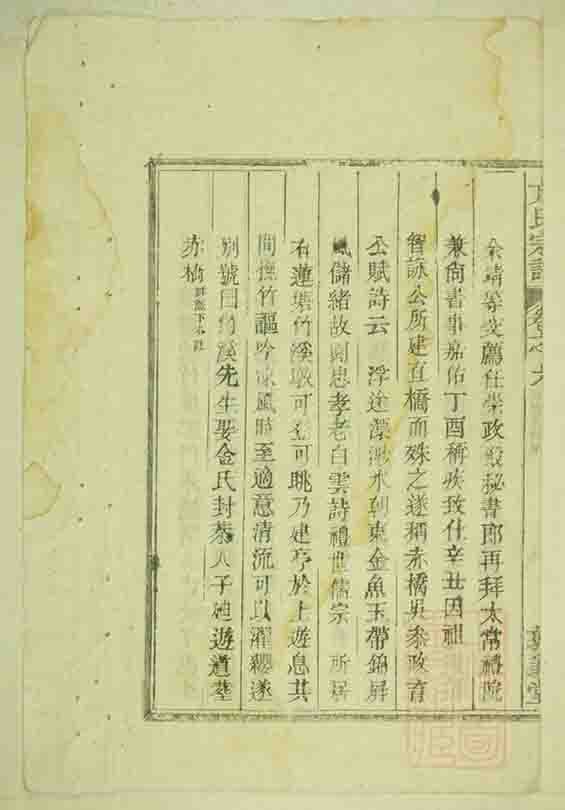 方氏宗譜 卷之六
余靖等交薦任崇政殿秘書郎再拜太常禮院
兼尚書事嘉佑丁酉稱疾致仕辛丑因祖
智詠公所建直橋而殊之遂稱赤橋吳參政育
公賦詩云 浮途漂渺水朝東金魚玉帶錦屏
風儲緒故園忠孝老白雲詩禮世儒宗 所居
右蓮塘竹溪墩可登可眺乃建亭於上遊息其
間撫竹謳吟涼風時至適意清流可以濯纓遂
別號曰竹溪先生娶金氏封恭人子 遊道塋
赤橋